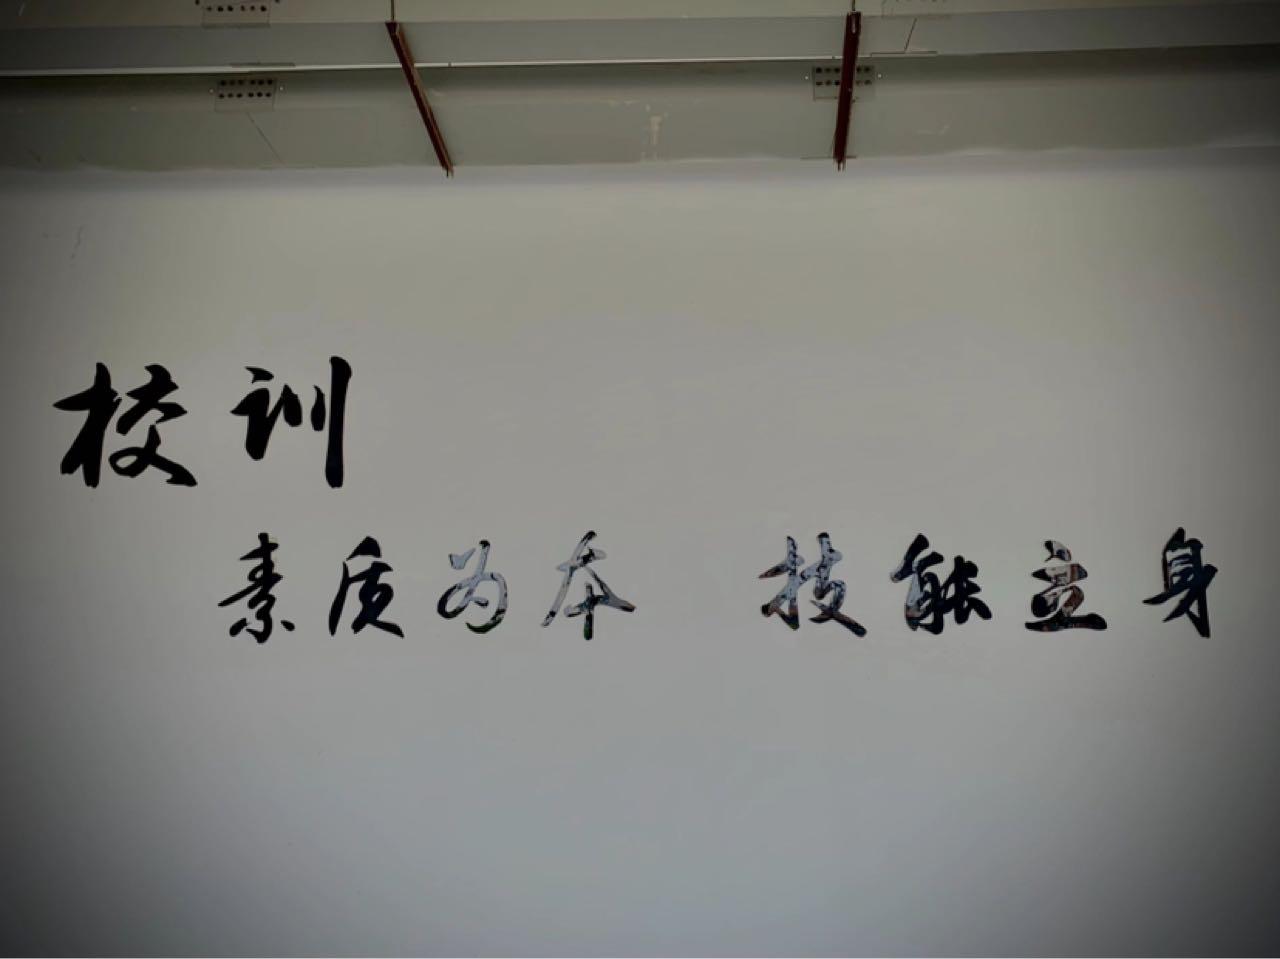 校训
素质为本 技能立身